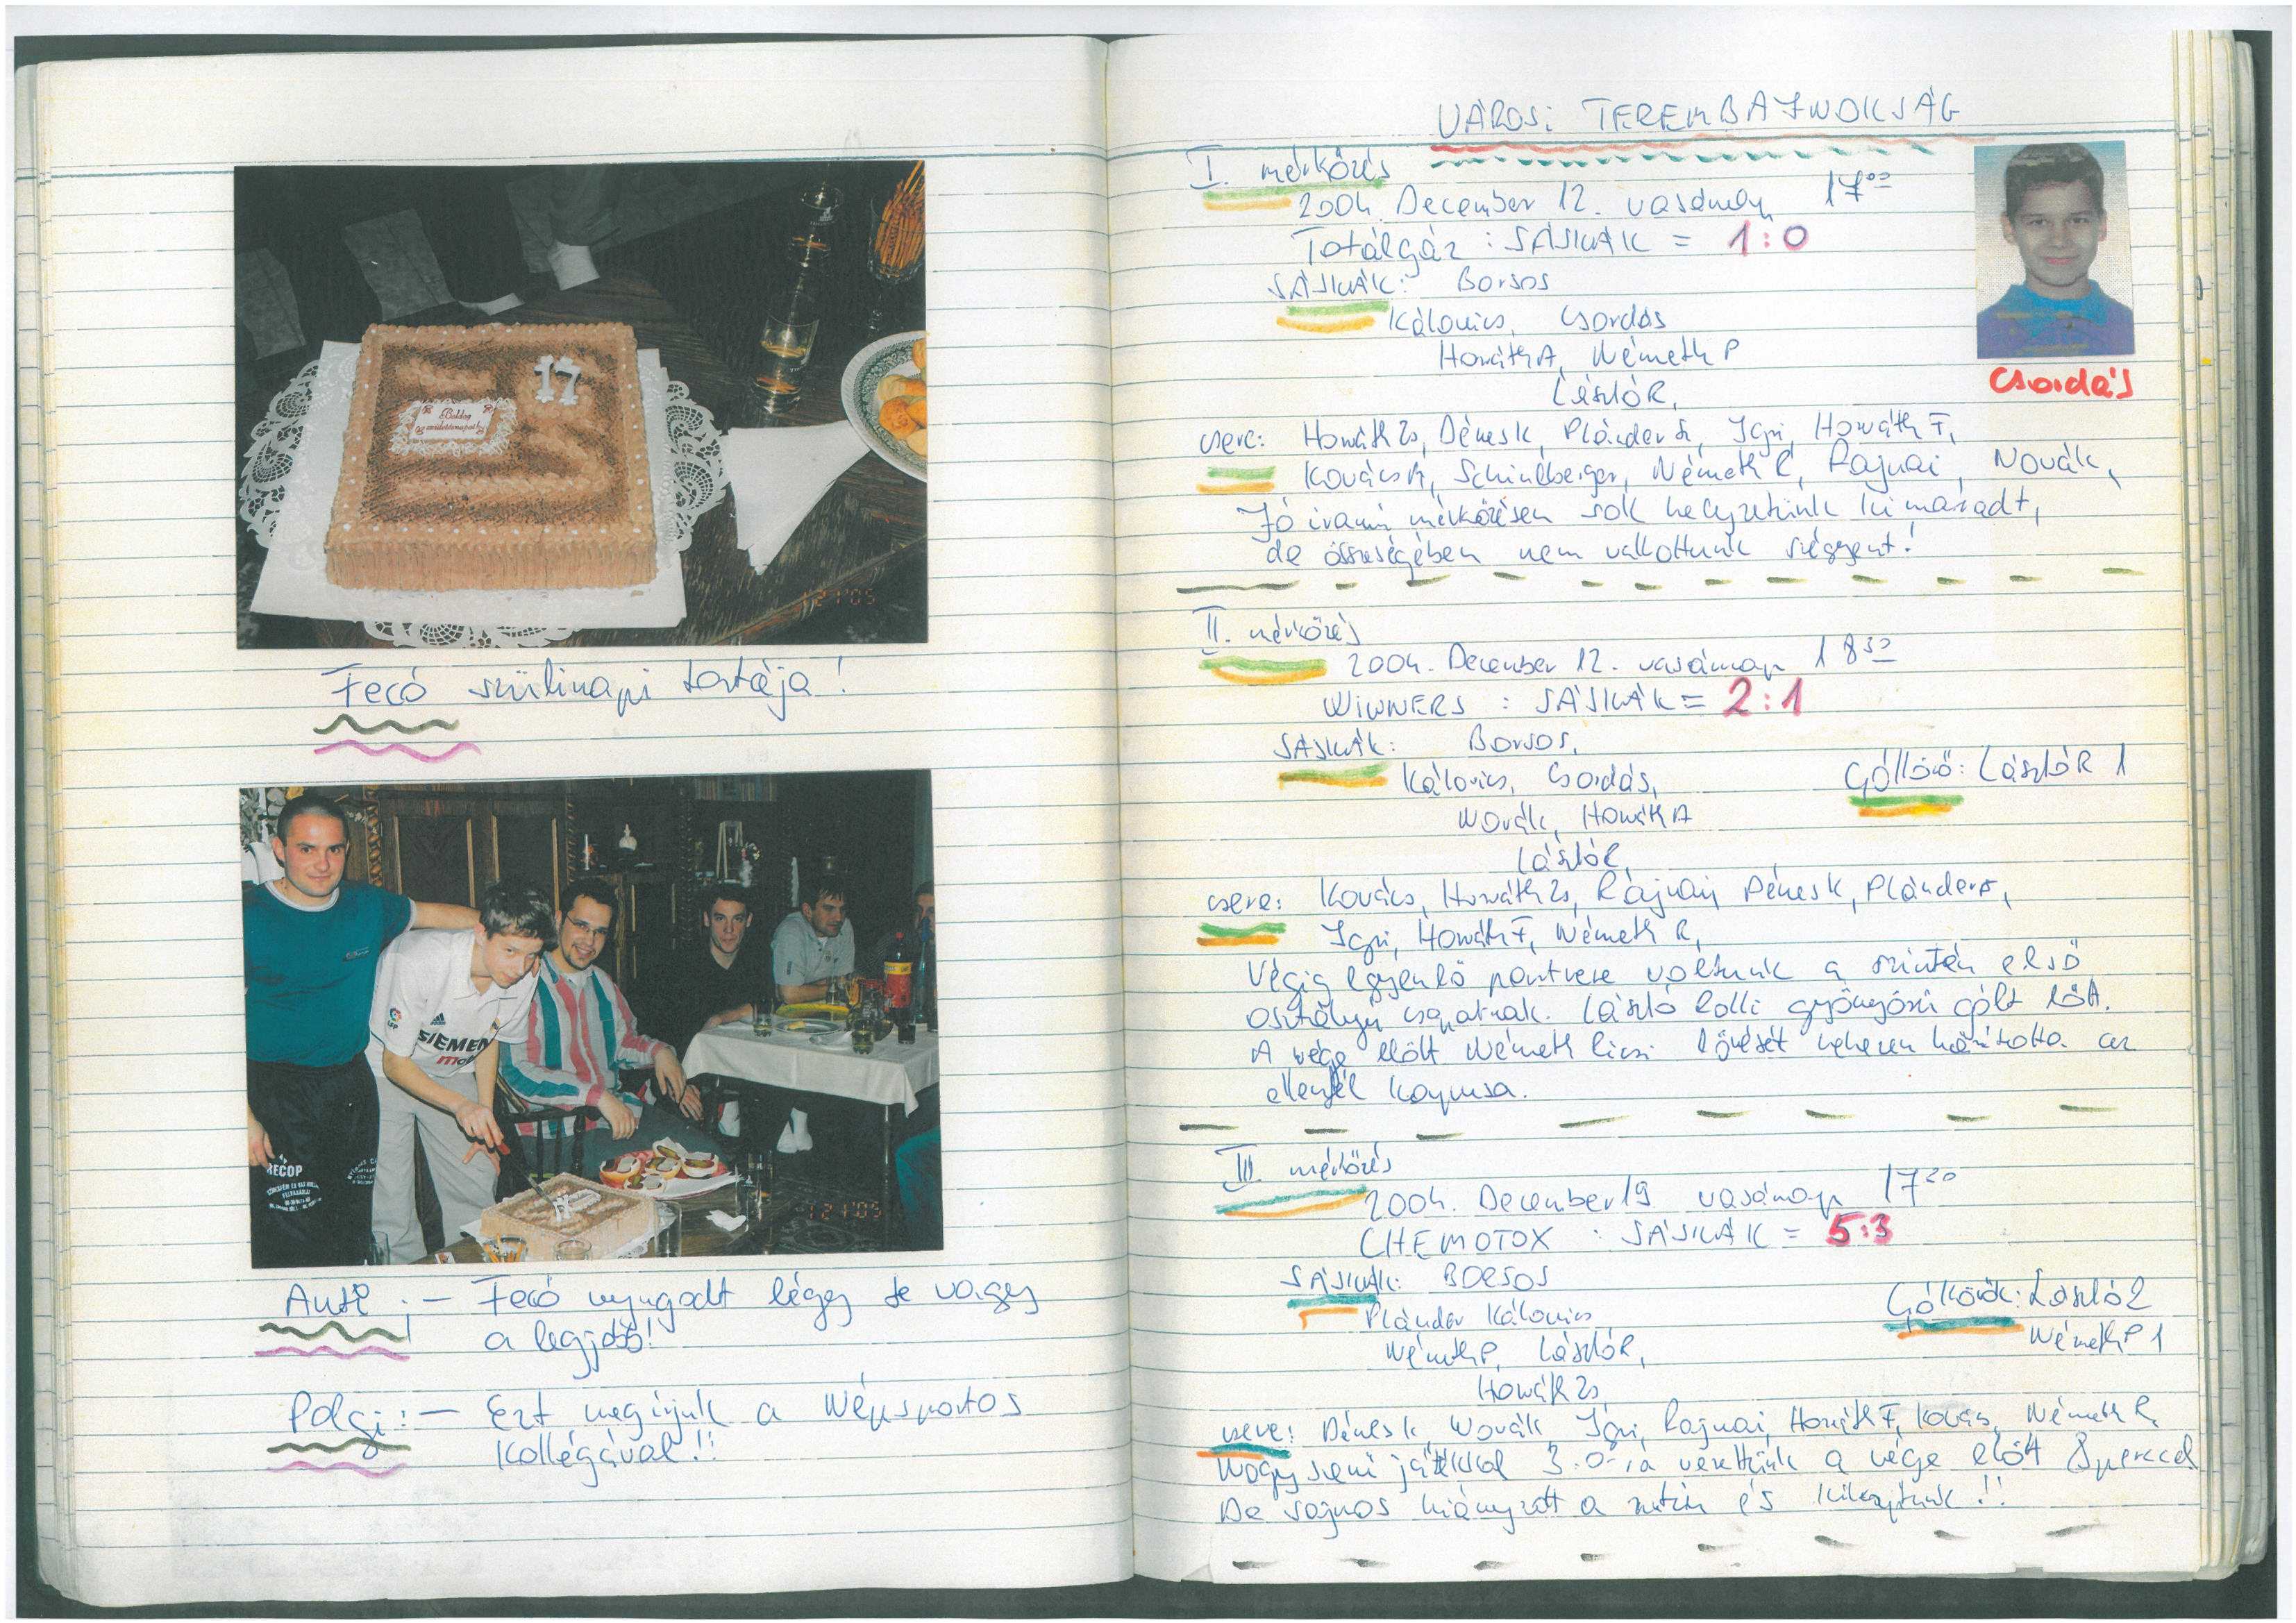 17
Boldog
születésnapot!
1 21'05
Fecó szülinapi tortája!
SIEMENS
RECOP
1 21'05
Anti :- Fecó nyugodt légy te vagy
a legjobb!
Polgi :- Ezt megírjuk a Népsportos
kollégával!!
VÁROSi TEREMBAJNOKSÁG
I. mérkőzés
2004. December 12. vasárnap 17⁰⁰
Totálgáz : SÁSKÁK = 1:0
SÁSKÁK: Borsos
Kálovics, Csordás
Horváth A, Németh P
László R,
Csordás
csere: Horváth Zs, Dénes K, Plánder, Igri, Horváth F,
Kovács A, Schinlberger, Németh R, Rajnai, Novák,
Jó iramú mérkőzésen sok helyzetünk kimaradt,
de összeségében nem vallottunk szégyent!
II. mérkőzés
2004. December 12. vasárnap 18³⁰
WINNERS : SÁSKÁK = 2:1
SÁSKÁK: Borsos,
Kálovics, Csordás,
Novák, Horváth A
László R,
Góllövő: László R 1
csere: Kovács, Horváth Zs, Rajnai, Dénes K, Plánder,
Igri, Horváth F, Németh R,
Végig egyenlő partnere voltunk a szintén első
osztályú csapatnak. László Rolli gyönyörű gólt lőtt.
A vége előtt Németh Ricsi lövését nehezen hárította az
ellenfél kapusa.
III. mérkőzés
2004. December 19 vasárnap 17²⁰
CHEMOTOX : SÁSKÁK = 5:3
SÁSKÁK: BORSOS
Plánder Kálovics,
Németh P, László R,
Horváth Zs,
Góllövők: László 2
Németh P 1
csere: Dénes K, Novák, Igri, Rajnai, Horváth F, Kovács, Németh R,
Nagyszerű játékkal 3:0-ra vezettünk a vége előtt 8 perccel
De sajnos hiányzott a rutin és kikaptunk!!